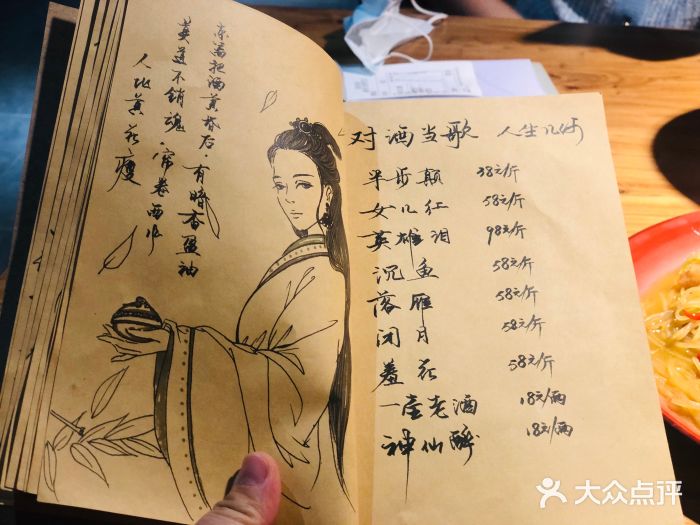 东篱把酒黄昏后·有暗香盈袖
莫道不销魂·帘卷西风
人比黄花瘦
对酒当歌 人生几何
半步颠 38元/斤
女儿红 58元/斤
英雄泪 98元/斤
沉鱼 58元/斤
落雁 58元/斤
闭月 58元/斤
羞花 58元/斤
一壶老酒 18元/两
神仙醉 18元/两
大众点评